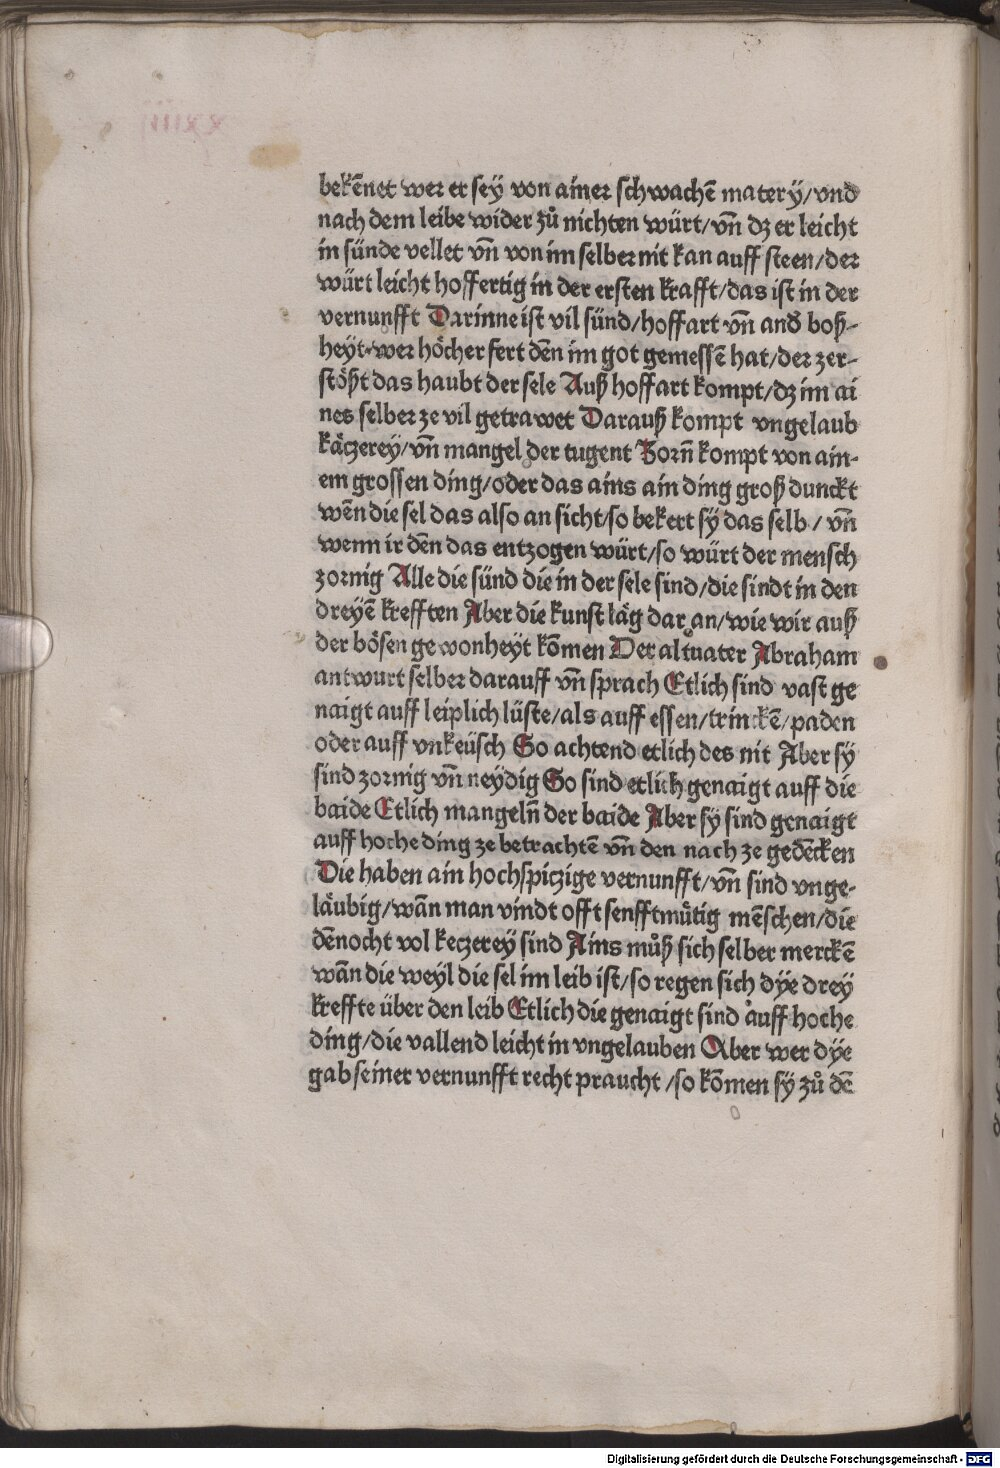 bekēnet wer er sey von ainer schwachē matery/vnd
nach dem leibe wider zů nichten würt/vn̄ dz er leicht
in sünde vellet vn̄ von im selber nit kan auff steen/der
würt leicht hoffertig in der ersten krafft/das ist in der
vernunfft Darinne ist vil sünd/hoffart vn̄ and̕ boß-
heyt·wer höcher fert dēn im got gemessē hat/der zer-
stößt das haubt der sele Auß hoffart kompt/dz im ai
nes selber ze vil getrawet Darauß kompt vngelaub
kätzerey/vn̄ mangel der tugent Zorn̄ kompt von ain-
em grossen ding/oder das ains ain ding groß dunckt
wēn die sel das also an sicht/so bekert sÿ das selb/vn̄
wenn ir dēn das entzogen würt/so würt der mensch
zornig Alle die sünd die in der sele sind/die sindt in den
dreyē krefften Aber die kunst läg dar an/wie wir auß
der bösen gewonheyt kōmen Der altuater Abraham
antwurt selber darauff vn̄ sprach Etlich sind vast ge
naigt auff leiplich lüste/als auff essen/trinckē/paden
oder auff vnkeüsch So achtend etlich des nit Aber sy
sind zornig vn̄ neÿdig So sind etlich genaigt auff die
baide Etlich mangeln̄ der baide Aber sÿ sind genaigt
auff hoche ding ze betrachtē vn̄ den nach ze gedēcken
Die haben ain hochspiczige vernunfft/vn̄ sind vnge-
läubig/wān man vindt offt senfftmütig mēschen/die
dēnocht vol keczerey sind Ains můß sich selber merckē
wān die weyl die sel im leib ist/so regen sich dÿe drey
kreffte über den leib Etlich die genaigt sind auff hoche
ding/die vallend leicht in vngelauben Aber wer dÿe
gab seiner vernunfft recht praucht/so kōmen sÿ zů dē
Digitalisierung gefördert durch die Deutsche Forschungsgemeinschaft - DFG